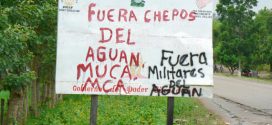 FUERA CHEPOS
DEL
AGUAN
MUCA
MCA
Fuera
Militares
Del
AGUAN
Gobierno
Poder